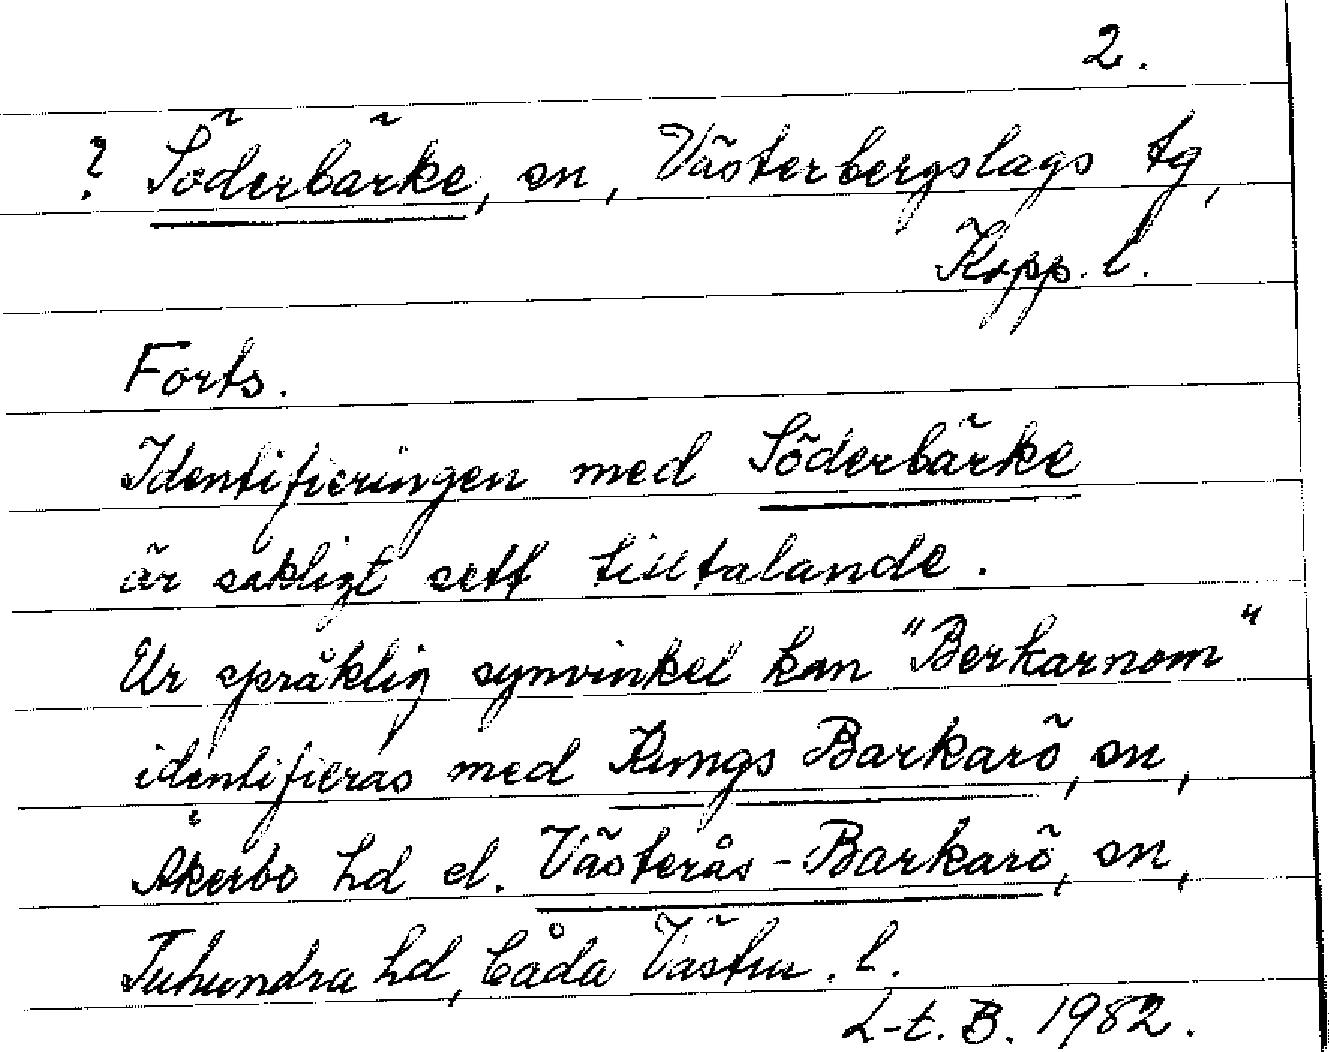 2.
? Söderbärke, sn, Västerbergslags tg,
Kopp. l.
Forts.
Identifieringen med Söderbärke
är sakligt sett tilltalande.
Ur språklig synvinkel kan "Berkarnom"
identifieras med Kungs Barkarö, sn,
Åkerbo hd el. Västerås-Barkarö, sn,
Tuhundra hd, båda Västm. l.
L-t. B. 1982.